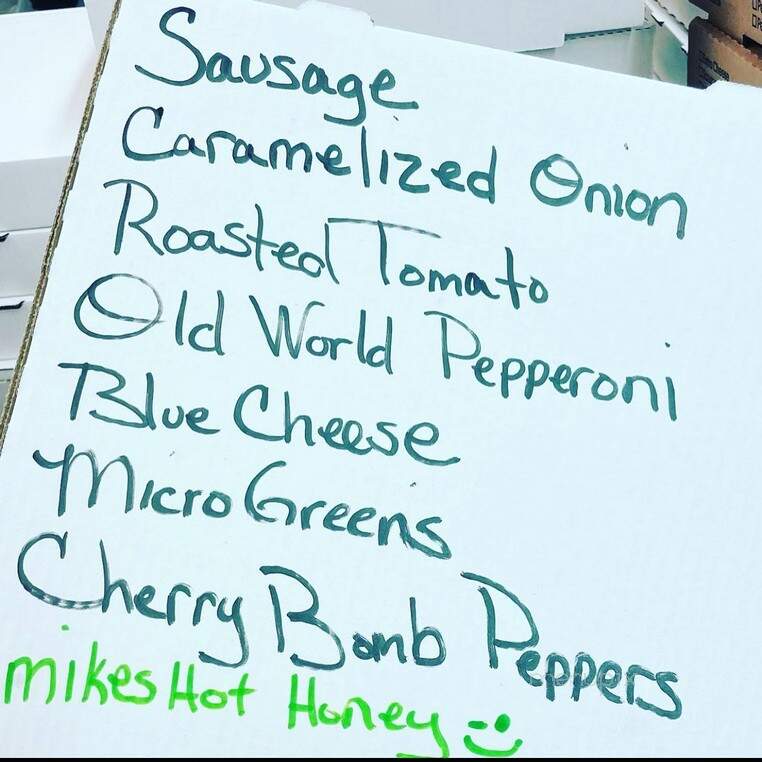 Sausage
Caramelized Onion
Roasted Tomato
Old World Pepperoni
Blue Cheese
Micro Greens
Cherry Bomb Peppers
mikes Hot Honey